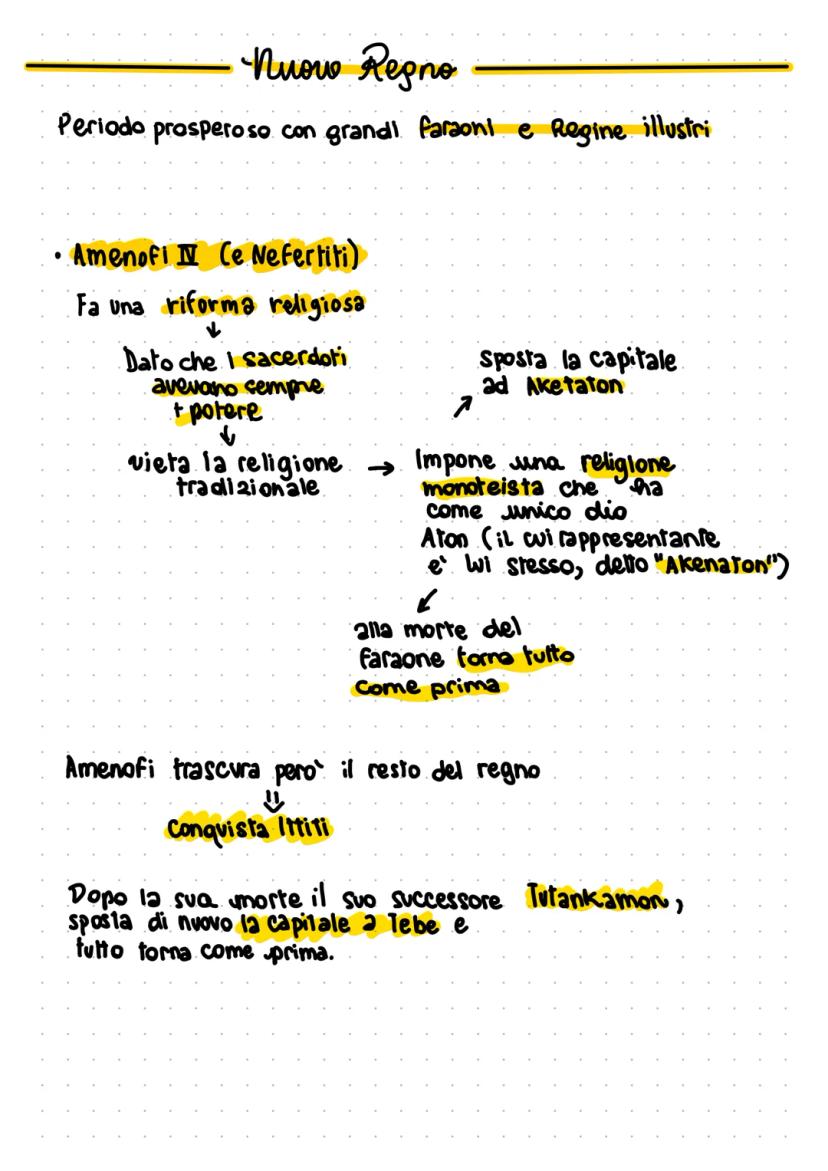 Nuovo Regno
Periodo prosperoso con grandi faraoni e Regine illustri
• Amenofi IV (e Nefertiti)
Fa una riforma religiosa
↓
Dato che i sacerdoti
avevano sempre
+ potere
↓
vieta la religione
tradizionale
→
Impone una religione
monoteista che ha
come unico dio
Aton (il cui rappresentante
e' lui stesso, detto "Akenaton")
↗
sposta la capitale
ad Aketaton
↙
alla morte del
faraone torna tutto
come prima
Amenofi trascura pero' il resto del regno
⇓
Conquista Ittiti
Dopo la sua morte il suo successore Tutankamon,
sposta di nuovo la capitale a Tebe e
tutto torna come prima.